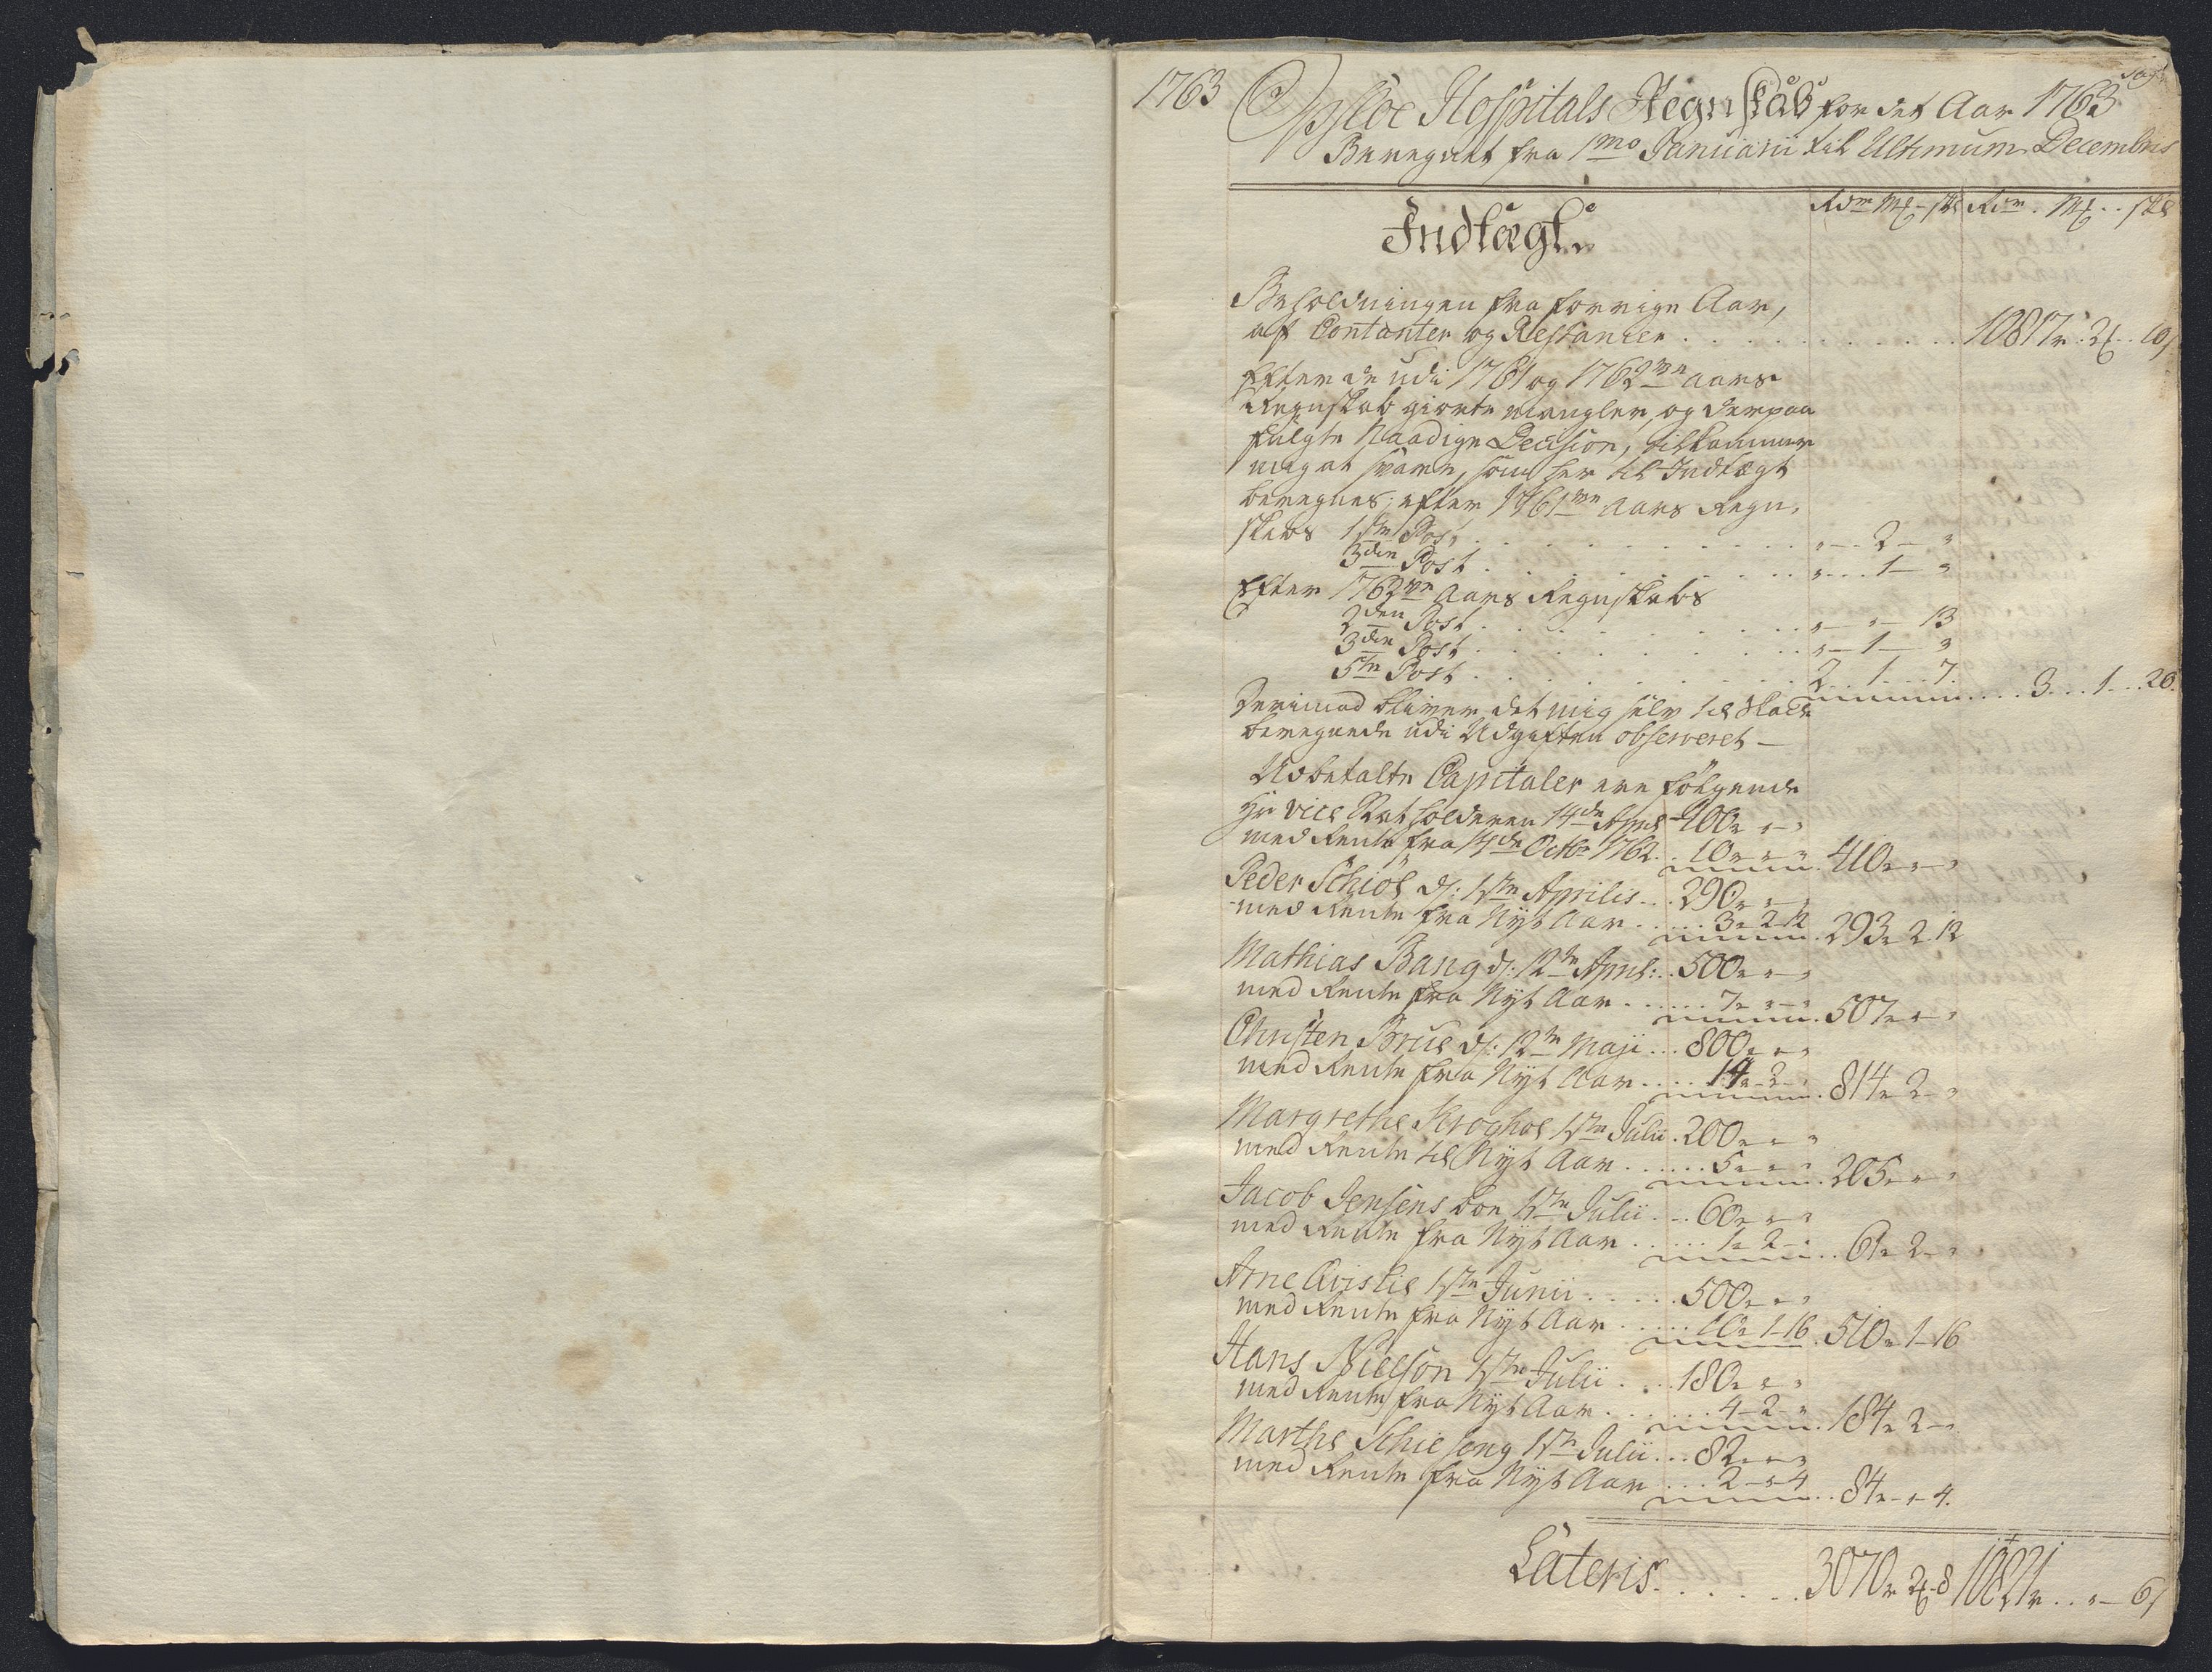 1763
Opsloe Hospitals Regnskab for det Aar 1763
Beregnet fra 1mo Januarii til Ultimum Decembris
Rdr Mk - sk Rdr . Mk . . sk
Indtægt
Beholdningen fra forrige Aar,
af Contanter og Restancer . . . . . . . . . . . 10817r . 2 . . 10
Efter de udi 1761 og 1762de Aars
Regnskab giorte mangler, og derpaa
fulgte Naadige Decision, tilkommer
mig at svare, som her til Indtægt
beregnes; efter 1761de Aars Regn-
skabs 1ste Post . . . . . . . . . . . " - 2 - "
3die Post . . . . . . . . . . . " - 1 - "
Efter 1762de Aars Regnskabs
2den Post . . . . . . . . . . . " - " - 13
3die Post . . . . . . . . . . . " - 1 - "
5te Post . . . . . . . . . . . 2 . 1 . 7 . . . . 3 . . . 1 . . . 20
Derimod bliver det mig selv til
beregnede udi Udgiften observeret -
Udbetalte Capitaler ere følgende
Hr Vice Statholderen 14de April 400r " - "
med Rente fra 14de Octbr 1762 . . 10r " - " 410r " - "
Peder Schiøl d: 1ste Aprilis . . . 290r " - "
med Rente fra Nyt Aar . . . . . 3r 2 - 12 293r 2 . 12
Mathias Bang d: 12te April: . . 500r " - "
med Rente fra Nyt Aar . . . . . . 7r " - " 507r " - "
Christen Brue d: 12te Maji . . . 800r " - "
med Rente fra Nyt Aar . . . . . 14r - 2 - " 814r 2 - "
Margrethe 1ste Julii . 200r " - "
med Rente til Nyt Aar . . . . . . 5r " - " 205r " - "
Jacob Jensens Boe 1ste Julii . . . 60r " - "
med Rente fra Nyt Aar . . . . . . 1r 2 - " 61r 2 - "
Arne 1ste Junii . . . . . 500r " - "
med Rente fra Nyt Aar . . . . . 10r 1 - 16 510r 1 - 16
Hans Nielson 1ste Julii . . . 180r " - "
med Rente fra Nyt Aar . . . . . . 4 - 2 - " 184r 2 - "
Marthe 1ste Julii . . . 82r " - "
med Rente fra Nyt Aar . . . 2 - " 4 84r - " - 4.
Lateris . . . . . 3070r 2 - 8 10821r . . " - 6